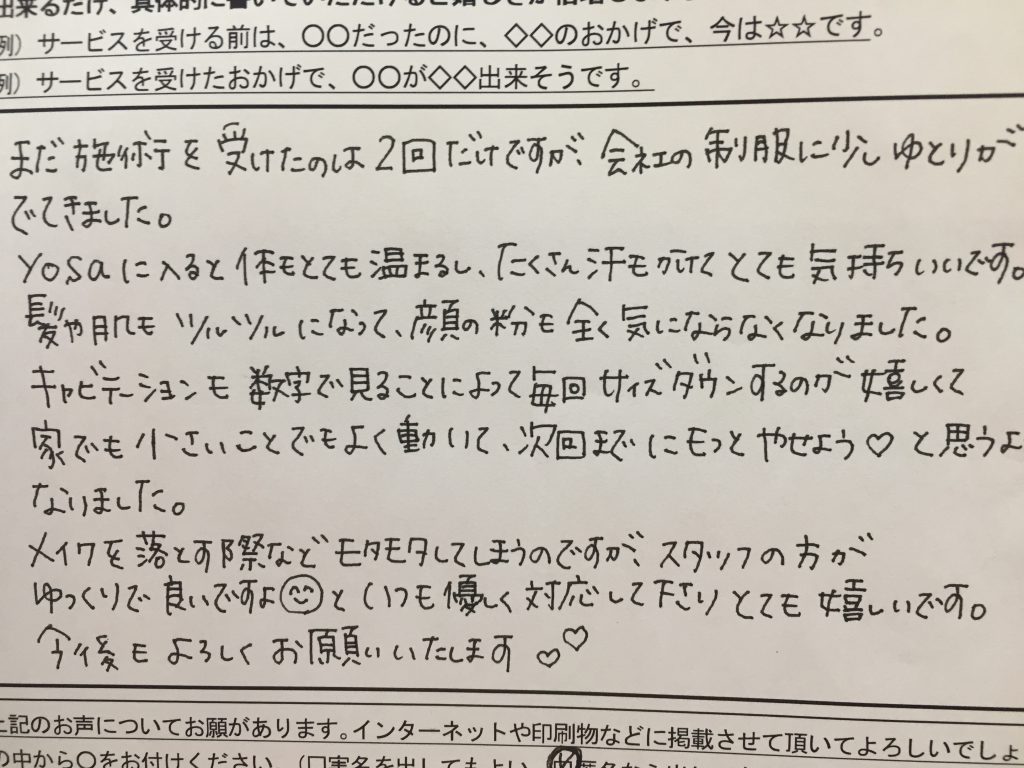 出来るだけ、具体的に書いていただけると嬉しさが倍増しま
例）サービスを受ける前は、〇〇だったのに、◇◇のおかげで、今は☆☆です。
例）サービスを受けたおかげで、〇〇が◇◇出来そうです。
まだ施術を受けたのは2回だけですが、会社の制服に少しゆとりが
でてきました。
YOSAに入ると体もとても温まるし、たくさん汗もかけてとても気持ちいいです。
髪や肌もツルツルになって、顔の粉も全く気にならなくなりました。
キャビテーションも数字で見ることによって毎回サイズダウンするのが嬉しくて
家でも小さいことでもよく動いて、次回までにもっとやせよう♡と思うよ
なりました。
メイクを落とす際などモタモタしてしまうのですが、スタッフの方が
ゆっくりで良いですよ😊といつも優しく対応して下さりとても嬉しいです。
今後もよろしくお願いいたします♡♡
上記のお声についてお願があります。インターネットや印刷物などに掲載させて頂いてよろしいでしょ
の中から〇をお付けください。（口実名を出してもよい